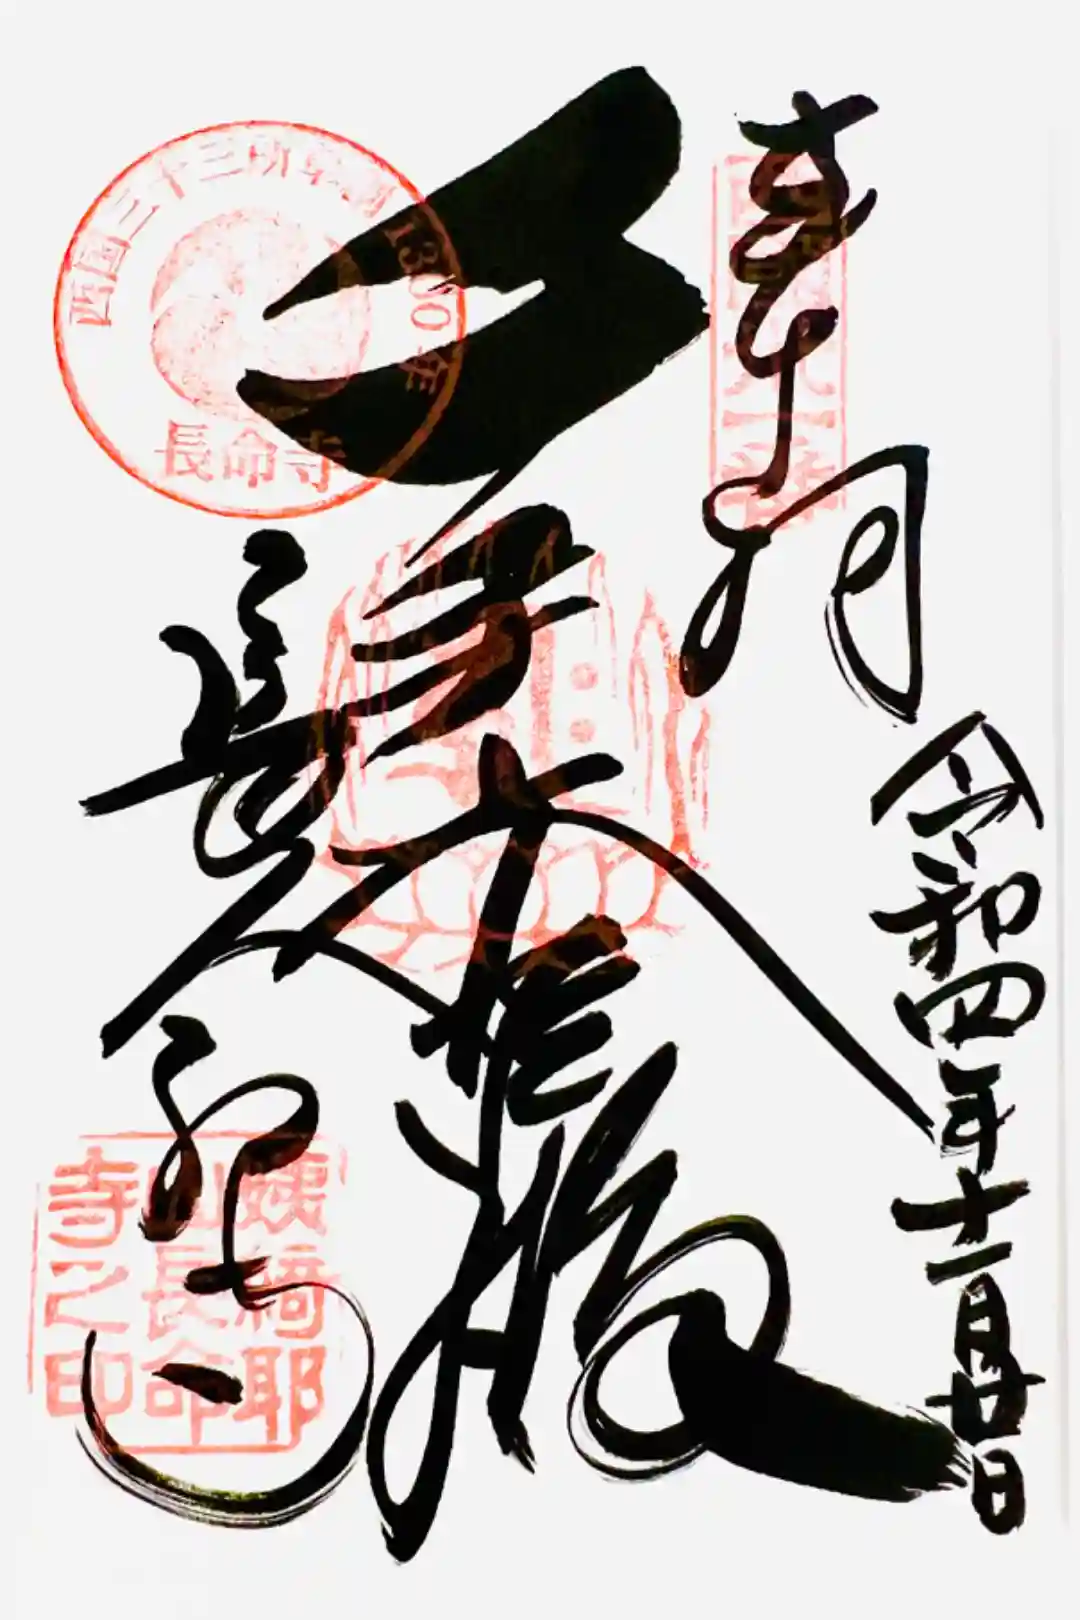 奉拝
西國三十一番
令和四年十一月廿日
大悲殿
長命寺
西國三十三所草創1300年
長命寺
姨綺耶
山長命
寺之印